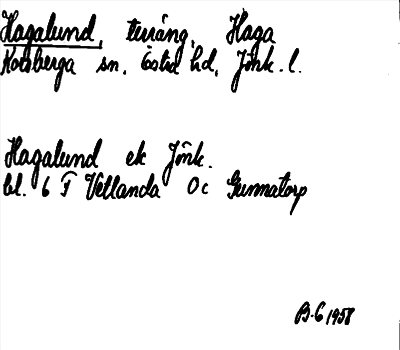 Hagalund, terräng, Haga
Korsberga sn, Östra hd, Jönk. l.
Hagalund ek Jönk.
bl. 6 F Vetlanda 0c Gunnatorp
B-G 1958